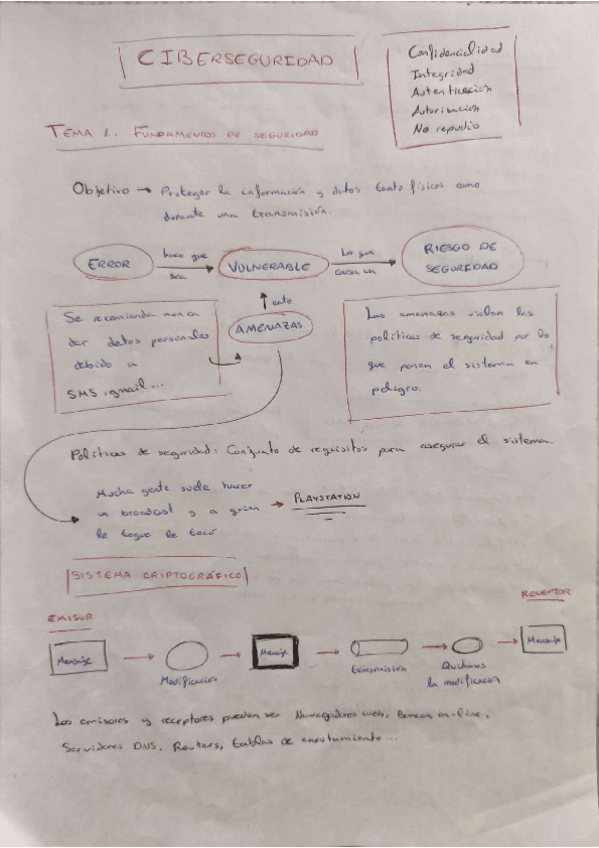 CIBERSEGURIDAD
Confidencialidad
Integridad
Autenticación
Autorización
No repudio
TEMA 1. FUNDAMENTOS DE SEGURIDAD
Objetivo → Proteger la información y datos tanto físicos como
durante una transmisión.
ERROR
hace que
sea
VULNERABLE
lo que
causa un
RIESGO DE
SEGURIDAD
ante
AMENAZAS
Se recomienda nunca
dar datos personales
debido a
SMS, gmail...
Las amenazas violan las
políticas de seguridad por lo
que ponen el sistema en
peligro.
Políticas de seguridad: Conjunto de requisitos para asegurar el sistema.
Mucha gente suele hacer
un broadcast y a quien → PLAYSTATION
le toque le tocó
SISTEMA CRIPTOGRÁFICO
EMISOR
RECEPTOR
Mensaje
Modificación
Mensaje
transmisión
Quitamos
la modificación
Mensaje
Los emisores y receptores pueden ser Navegadores web, Bancos on-line,
Servidores DNS, Routers, tablas de enrutamiento...